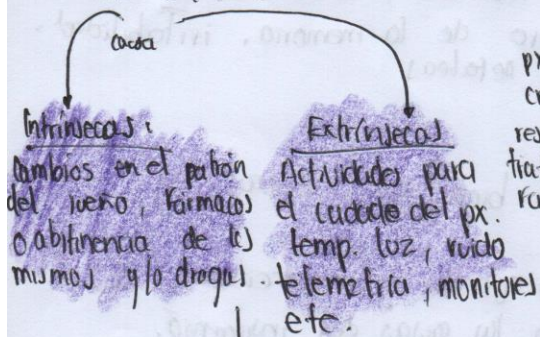 causa
Intrínsecas:
Cambios en el patrón
del sueño, fármacos
o abstinencia de los
mismos y/o drogas.
Extrínsecas
Actividades para
el cuidado del px.
temp. luz, ruido
telemetría, monitores
etc.